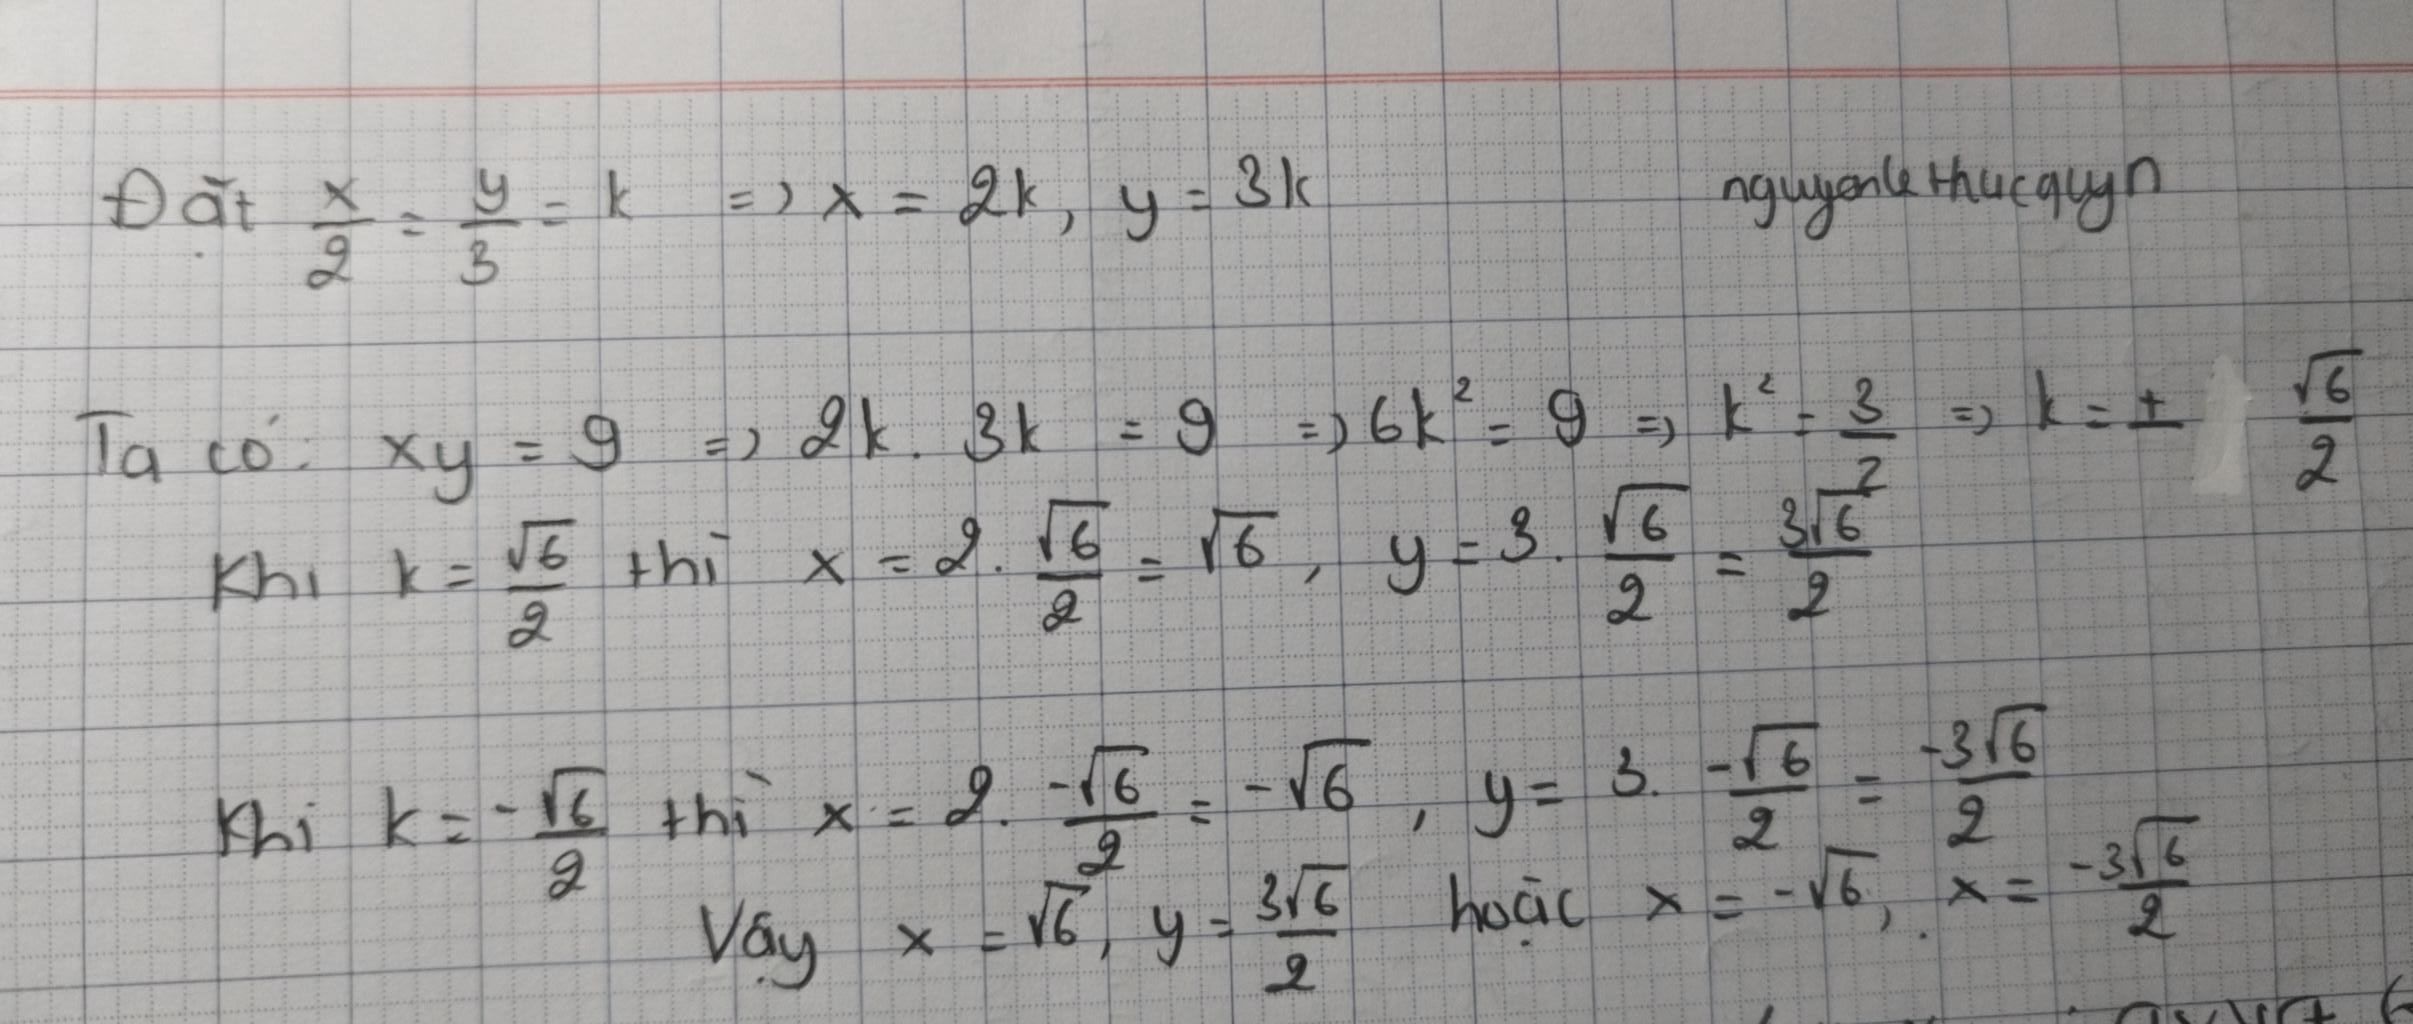 Đặt x/2 = y/3 = k => x = 2k, y = 3k nguyenle thucquyn
Ta có: xy = 9 => 2k. 3k = 9 => 6k² = 9 => k² = 3/2 => k = ± √6/2
Khi k = √6/2 thì x = 2. √6/2 = √6, y = 3. √6/2 = 3√6/2
Khi k = -√6/2 thì x = 2. -√6/2 = -√6, y = 3. -√6/2 = -3√6/2
Vậy x = √6, y = 3√6/2 hoặc x = -√6, x = -3√6/2